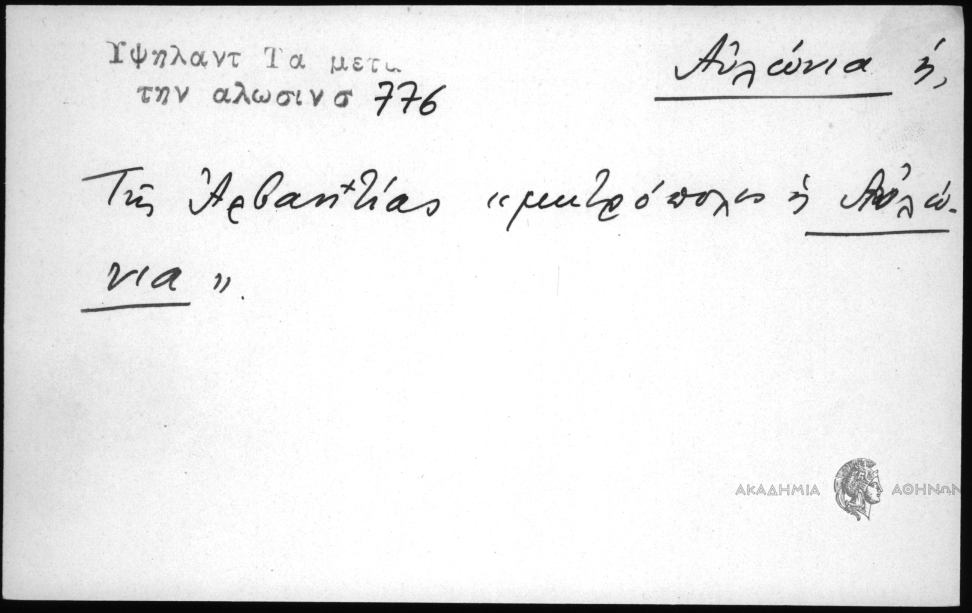 Υψηλαντ Τα μετα
την αλωσιν σ 776
Αὐλώνια ἡ,
Τῆς Ἀρβανιτίας «μητρόπολις ἡ Αὐλώ-
νια».
ΑΚΑΔΗΜΙΑ ΑΘΗΝΩΝ